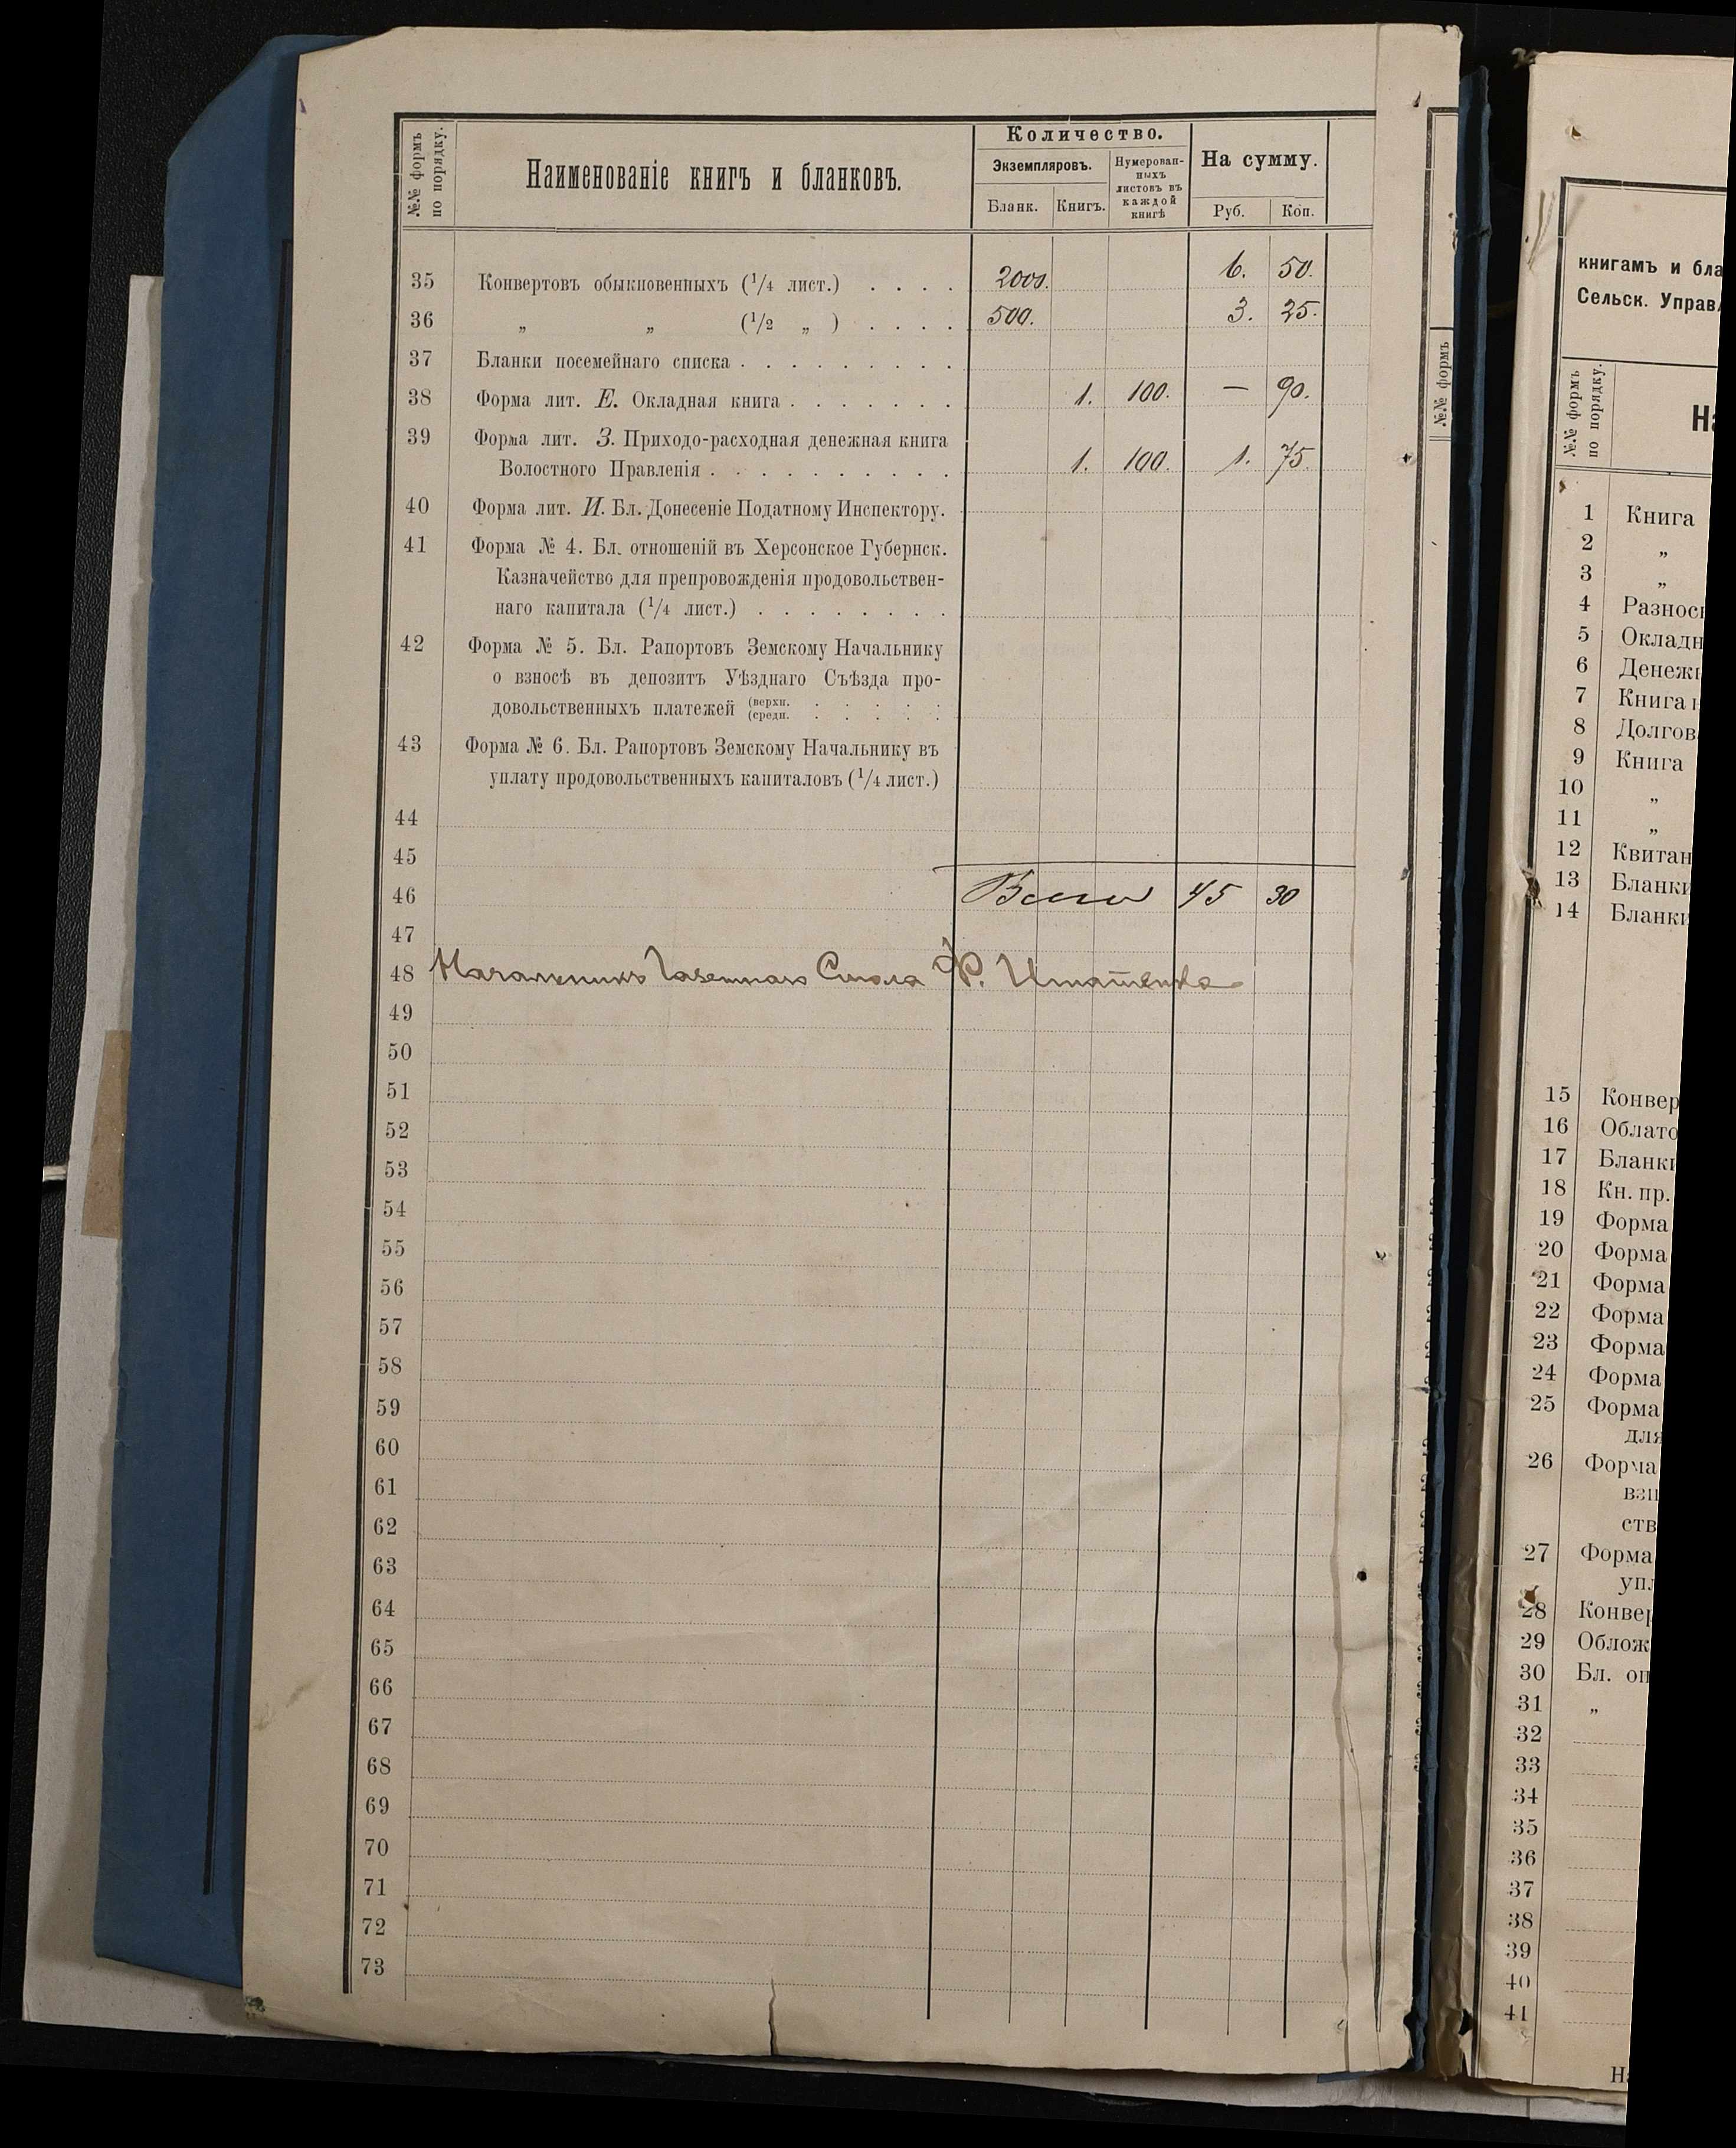 №№ формъ по порядку.
Наименованіе книгъ и бланковъ.
Количество.
Экземпляровъ.
Бланк.
Книгъ.
Нумерован-
ныхъ
листовъ въ
каждой
книгѣ
На сумму.
Руб.
Коп.
35 Конвертовъ обыкновенныхъ (1/4 лист.) . . . . 2000. 6. 50.
36 „ „ (1/2 „ ) . . . . 500. 3. 25.
37 Бланки посемейнаго списка . . . . . . . . .
38 Форма лит. Е. Окладная книга . . . . . . . 1. 100. — 90.
39 Форма лит. З. Приходо-расходная денежная книга
Волостного Правленія . . . . . . . . . . 1. 100. 1. 75.
40 Форма лит. И. Бл. Донесеніе Податному Инспектору.
41 Форма № 4. Бл. отношеній въ Херсонское Губернск.
Казначейство для препровожденія продовольствен-
наго капитала (1/4 лист.) . . . . . . . .
42 Форма № 5. Бл. Рапортовъ Земскому Начальнику
о взносѣ въ депозитъ Уѣзднаго Съѣзда про-
довольственныхъ платежей (верхн. . . . . .
(средн. . . . . .
43 Форма № 6. Бл. Рапортовъ Земскому Начальнику въ
уплату продовольственныхъ капиталовъ (1/4 лист.)
44
45
46 Всего 45 30
47
48 Начальникъ Газетнаго Стола Ф.
49
50
51
52
53
54
55
56
57
58
59
60
61
62
63
64
65
66
67
68
69
70
71
72
73
№№ формъ
книгамъ и бла
Сельск. Управл
№№ формъ по порядку.
На
1 Книга
2 „
3 „
4 Разнос
5 Окладн
6 Денеж
7 Книга
8 Долгов
9 Книга
10 „
11 „
12 Квитан
13 Бланки
14 Бланки
15 Конвер
16 Облато
17 Бланки
18 Кн. пр.
19 Форма
20 Форма
21 Форма
22 Форма
23 Форма
24 Форма
25 Форма
для
26 Форма
взн
ств
27 Форма
упл
28 Конвер
29 Облож
30 Бл. оп
31 „
32
33
34
35
36
37
38
39
40
41
На